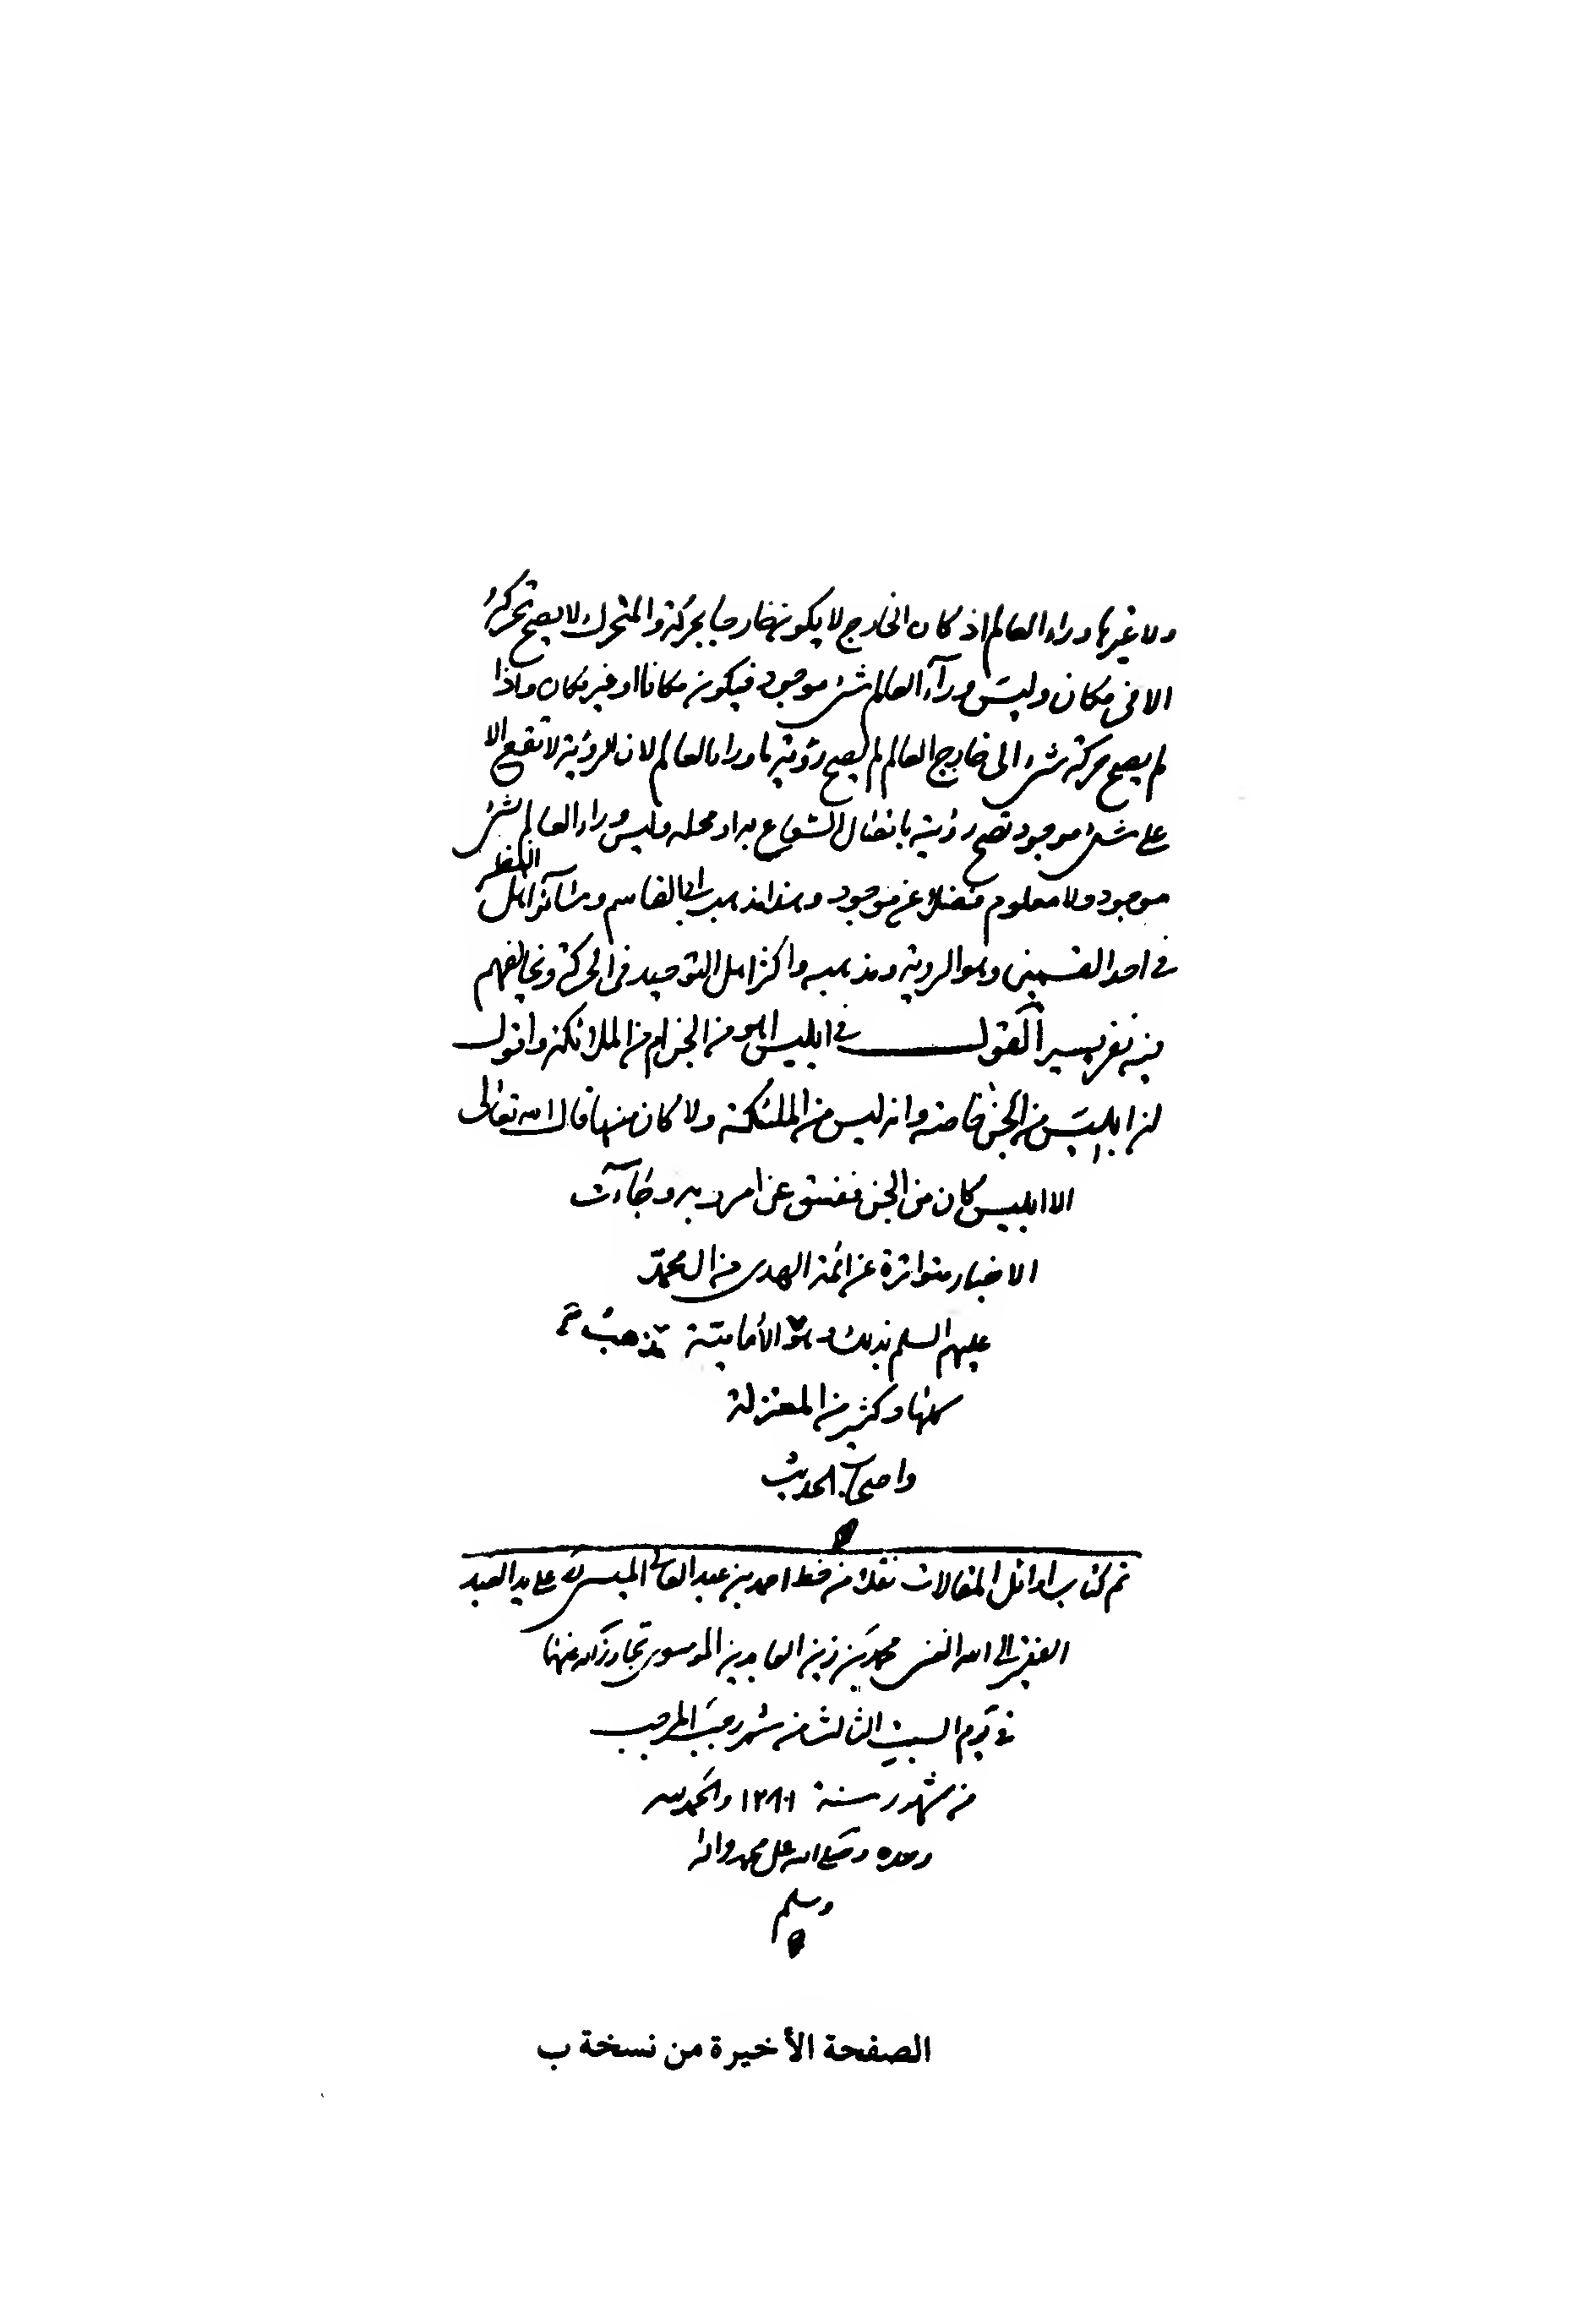 ولا غيرها وراء العالم اذ كان الخارج لا يكون خارجا بحركة والمتحرك لا يصح تحركه
الا في مكان وليس ورآء العالم شئ موجود فيكون مكانا او غير مكان واذا
لم يصح حركة شئ الى خارج العالم لم يصح رؤية ما وراء العالم لان الرؤية لا تقع الا
على شئ موجود تصح رؤيته باتصال الشعاع به او محله وليس وراء العالم شئ
موجود ولا معلوم فضلا عن موجود وهذا مذهب ابى القاسم وسآئر اهل النظر
في احد القسمين وهو الروية ومذهبه واكثر اهل التوحيد في الحركة ويخالفهم
فيه نفر يسير القول في ابليس اهو من الجن ام من الملائكة واقول
ان ابليس من الجن خاصة وانه ليس من الملئكة ولا كان منها قال الله تعالى
الا ابليس كان من الجن ففسق عن امر ربه وجآءت
الاخبار متواترة عن ائمة الهدى من ال محمد
عليهم السلم بذلك وهو الأمامية مذهب
كلها وكثير من المعتزلة
واصحاب الحديث
تم كتاب اوائل المقالات نقلا من خط احمد بن عبد العالى الميسى على يد العبد
الفقير الى الله الغنى محمد بن زين العابدين الموسوى تجاوز الله عنهما
في يوم السبت الثالث من شهر رجب المرجب
من شهور سنة والحمد لله
وحده وصلى الله على محمد واله
وسلم
الصفحة الأخيرة من نسخة ب